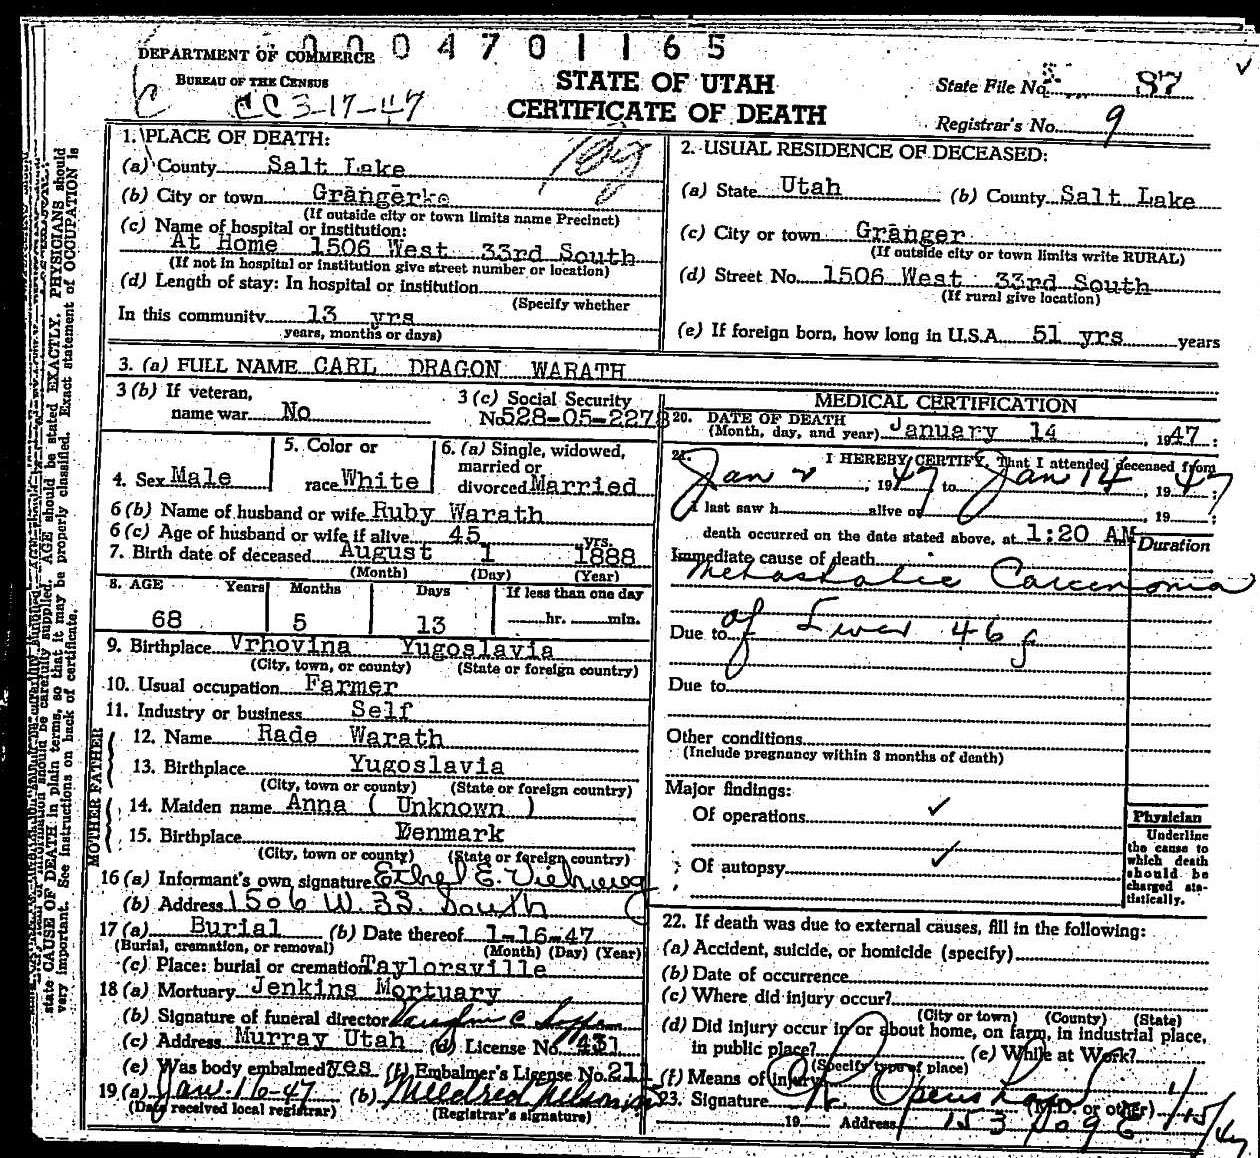 0004701165
DEPARTMENT OF COMMERCE
BUREAU OF THE CENSUS
CC 3-17-47
STATE OF UTAH
CERTIFICATE OF DEATH
State File No. 87
Registrar's No. 9
1. PLACE OF DEATH:
(a) County Salt Lake
(b) City or town Granger
(If outside city or town limits name Precinct)
(c) Name of hospital or institution:
At Home 1506 West 33rd South
(If not in hospital or institution give street number or location)
(d) Length of stay: In hospital or institution
(Specify whether
In this community 13 yrs
years, months or days)
2. USUAL RESIDENCE OF DECEASED:
(a) State Utah (b) County Salt Lake
(c) City or town Granger
(If outside city or town limits write RURAL)
(d) Street No. 1506 West 33rd South
(If rural give location)
(e) If foreign born, how long in U.S.A. 51 yrs years
3. (a) FULL NAME CARL DRAGON WARATH
3 (b) If veteran,
name war No
3 (c) Social Security
No 528-05-2278
4. Sex Male
5. Color or
race White
6. (a) Single, widowed,
married or
divorced Married
6 (b) Name of husband or wife Ruby Warath
6 (c) Age of husband or wife if alive 45 yrs.
7. Birth date of deceased August 1 1888
(Month) (Day) (Year)
8. AGE Years Months Days If less than one day
68 5 13 hr. min.
9. Birthplace Vrhovina Yugoslavia
(City, town, or county) (State or foreign country)
10. Usual occupation Farmer
11. Industry or business Self
FATHER
12. Name Rade Warath
13. Birthplace Yugoslavia
(City, town or county) (State or foreign country)
MOTHER
14. Maiden name Anna ( Unknown )
15. Birthplace Denmark
(City, town or county) (State or foreign country)
16 (a) Informant's own signature Ethel E.
(b) Address 1506 W. 33. South
17 (a) Burial (b) Date thereof 1-16-47
(Burial, cremation, or removal) (Month) (Day) (Year)
(c) Place: burial or cremation Taylorsville
18 (a) Mortuary Jenkins Mortuary
(b) Signature of funeral director
(c) Address Murray Utah (d) License No. 431
(e) Was body embalmed? yes (f) Embalmer's License No. 211
19 (a) Jan. 16-47 (b) Mildred
(Date received local registrar) (Registrar's signature)
MEDICAL CERTIFICATION
20. DATE OF DEATH
(Month, day, and year) January 14, 1947;
21. I HEREBY CERTIFY, That I attended deceased from
Jan 2, 1947, to Jan 14, 1947;
I last saw h alive on , 19 ;
death occurred on the date stated above, at 1:20 AM
Duration
Immediate cause of death
Metastatic Carcenoma
Due to of Liver 46
Due to
Other conditions
(Include pregnancy within 3 months of death)
Major findings:
Of operations ✓
Of autopsy ✓
Physician
Underline
the cause to
which death
should be
charged sta-
tistically.
22. If death was due to external causes, fill in the following:
(a) Accident, suicide, or homicide (specify)
(b) Date of occurrence
(c) Where did injury occur?
(City or town) (County) (State)
(d) Did injury occur in or about home, on farm, in industrial place,
in public place? (e) While at Work?
(Specify type of place)
(f) Means of injury
23. Signature (M.D. or other) 1/15/47
19 Address 153 So 9 E
state CAUSE OF DEATH in plain terms, so that it may be properly classified. Exact statement of OCCUPATION is
very important. See instructions on back of certificate.